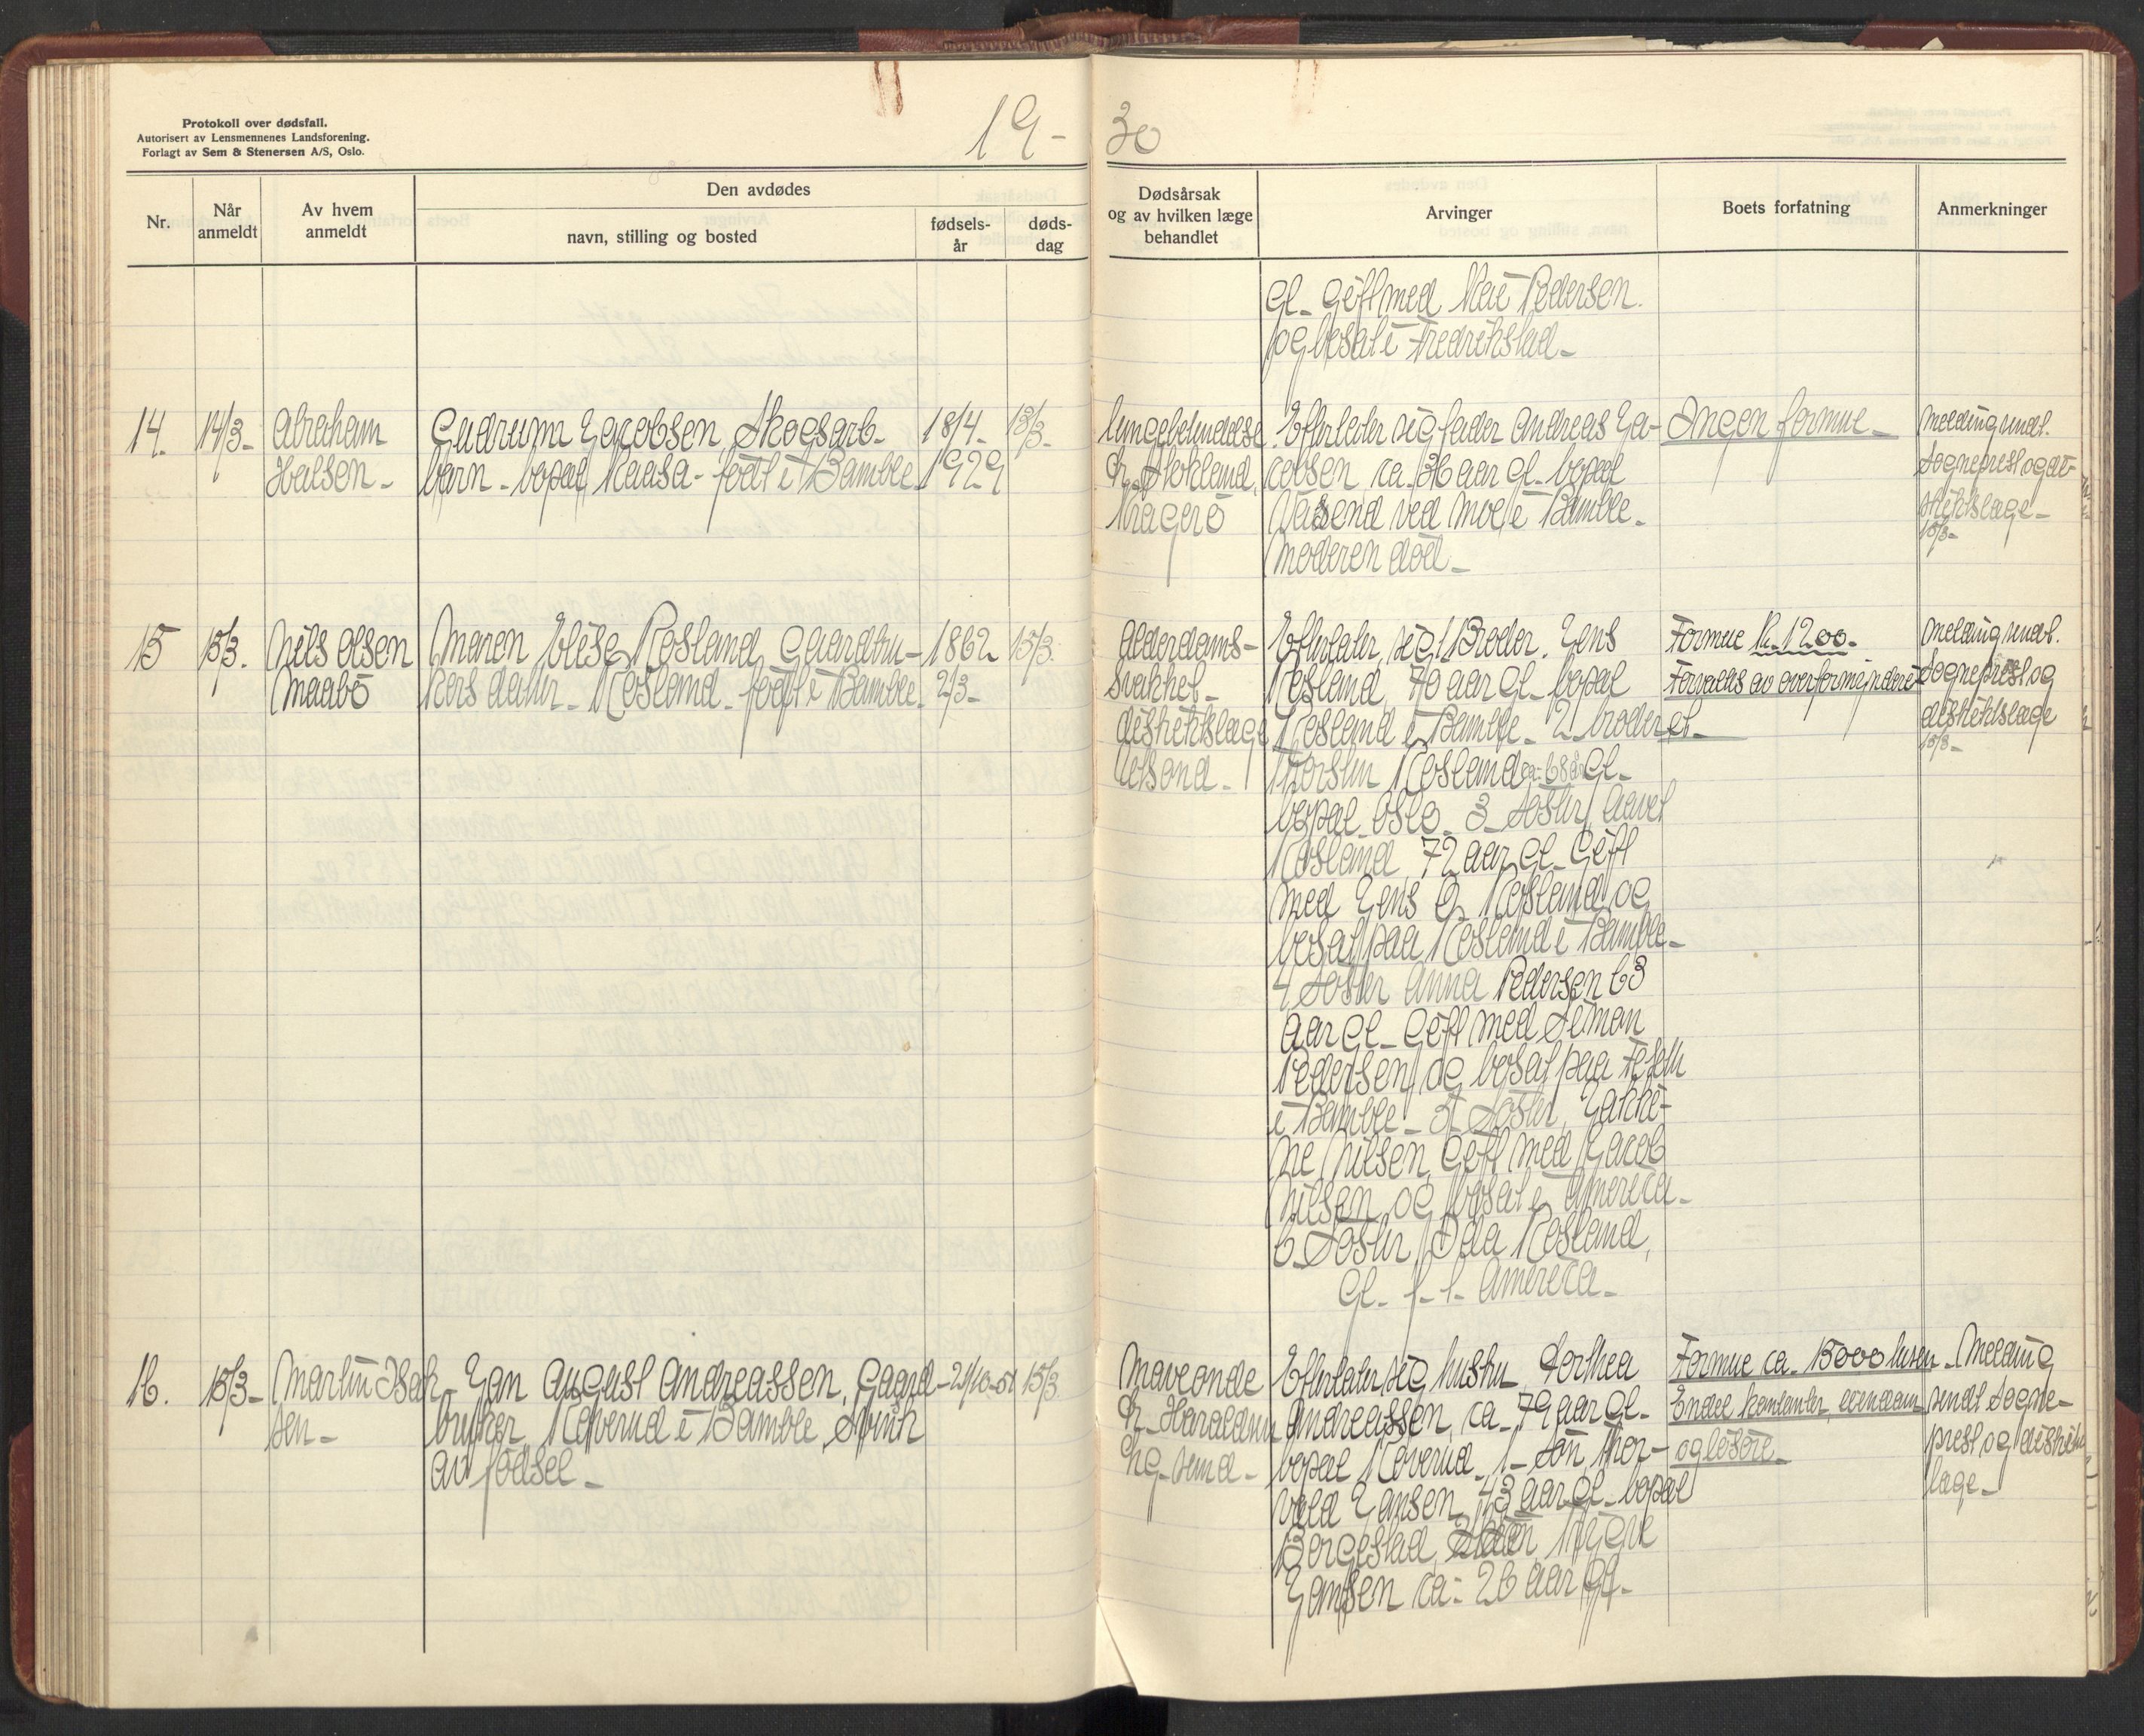 Protokoll over dødsfall.
Autorisert av Lensmennenes Landsforening.
Forlagt av Sem & Stenersen A/S, Oslo.
19-30
Nr.
Når anmeldt
Av hvem anmeldt
Den avdødes
navn, stilling og bosted
fødsels-år
døds-dag
Dødsårsak og av hvilken læge behandlet
Arvinger
Boets forfatning
Anmerkninger
gl- Gift med Kai Pedersen
og bosat i Fredrikstad-
14.
14/3-
Abraham
Halsen-
Gudrunn Jacobsen, Skogsarb-
barn- bopæl Kaasa- født i Bamble-
18/4-
1929
13/3-
lungebetendelse
dr. Stokland,
Kragerø
Efterlater sig fader Andreas Ja-
cobsen, ca. 36 aar gl- bopæl
ved Moe i Bamble-
Moderen død-
Ingen formue-
Melding sendt.
Sogneprest og di-
striktslæge-
15/3-
15
15/3.
Nils Olsen
Maabø
Maren Elise Rosland, Gaardbru-
kers datter- Rosland- født i Bamble-
1862-
2/3-
15/3.
Alderdoms-
svakhet-
distriktslæge
Efterlater sig 1 Broder. Jens
Rosland, 70 aar gl- bopæl
Rosland i Bamble- 2 broder
Rosland ca- 68 år gl-
bopæl Oslo- 3- Søster,
Rosland, 72 aar gl- Gift
med Jens O. Rosland og
bosat paa Rosland i Bamble-
4 Søster Anna Pedersen 63
aar gl- Gift med Siman
Pedersen og bosat paa
i Bamble- 5- Søster, Jakki-
ne Nilsen, Gift med Jacob
Nilsen og bosat i America-
6- Søster Ida Rosland,
gl- f-t- America-
Formue Kr. 1200-
Forvaltes av overformynderi-
et-
Melding sendt.
Sogneprest og
distriktslæge
15/3-
16.
15/3-
Martin Isak-
sen-
Jan August Andreassen, Gaard-
bruker, Roverud i Bamble, Svensk
av fødsel-
21/10-51
15/3
Maveonde
dr. Haraldsen
Efterlater sig hustru Dorthea
Andreassen, ca- 79 aar gl-
bopæl Roverud- 1- Søn, Thor-
vald Jansen, 43 aar gl- bopæl
Borgestad, Trygve
Jansen ca- 26 aar gl-
Formue ca- 15000 kroner-
Endel kontanter, eiendom
og løsøre-
Melding
sendt Sogne-
prest og distrikts
læge-